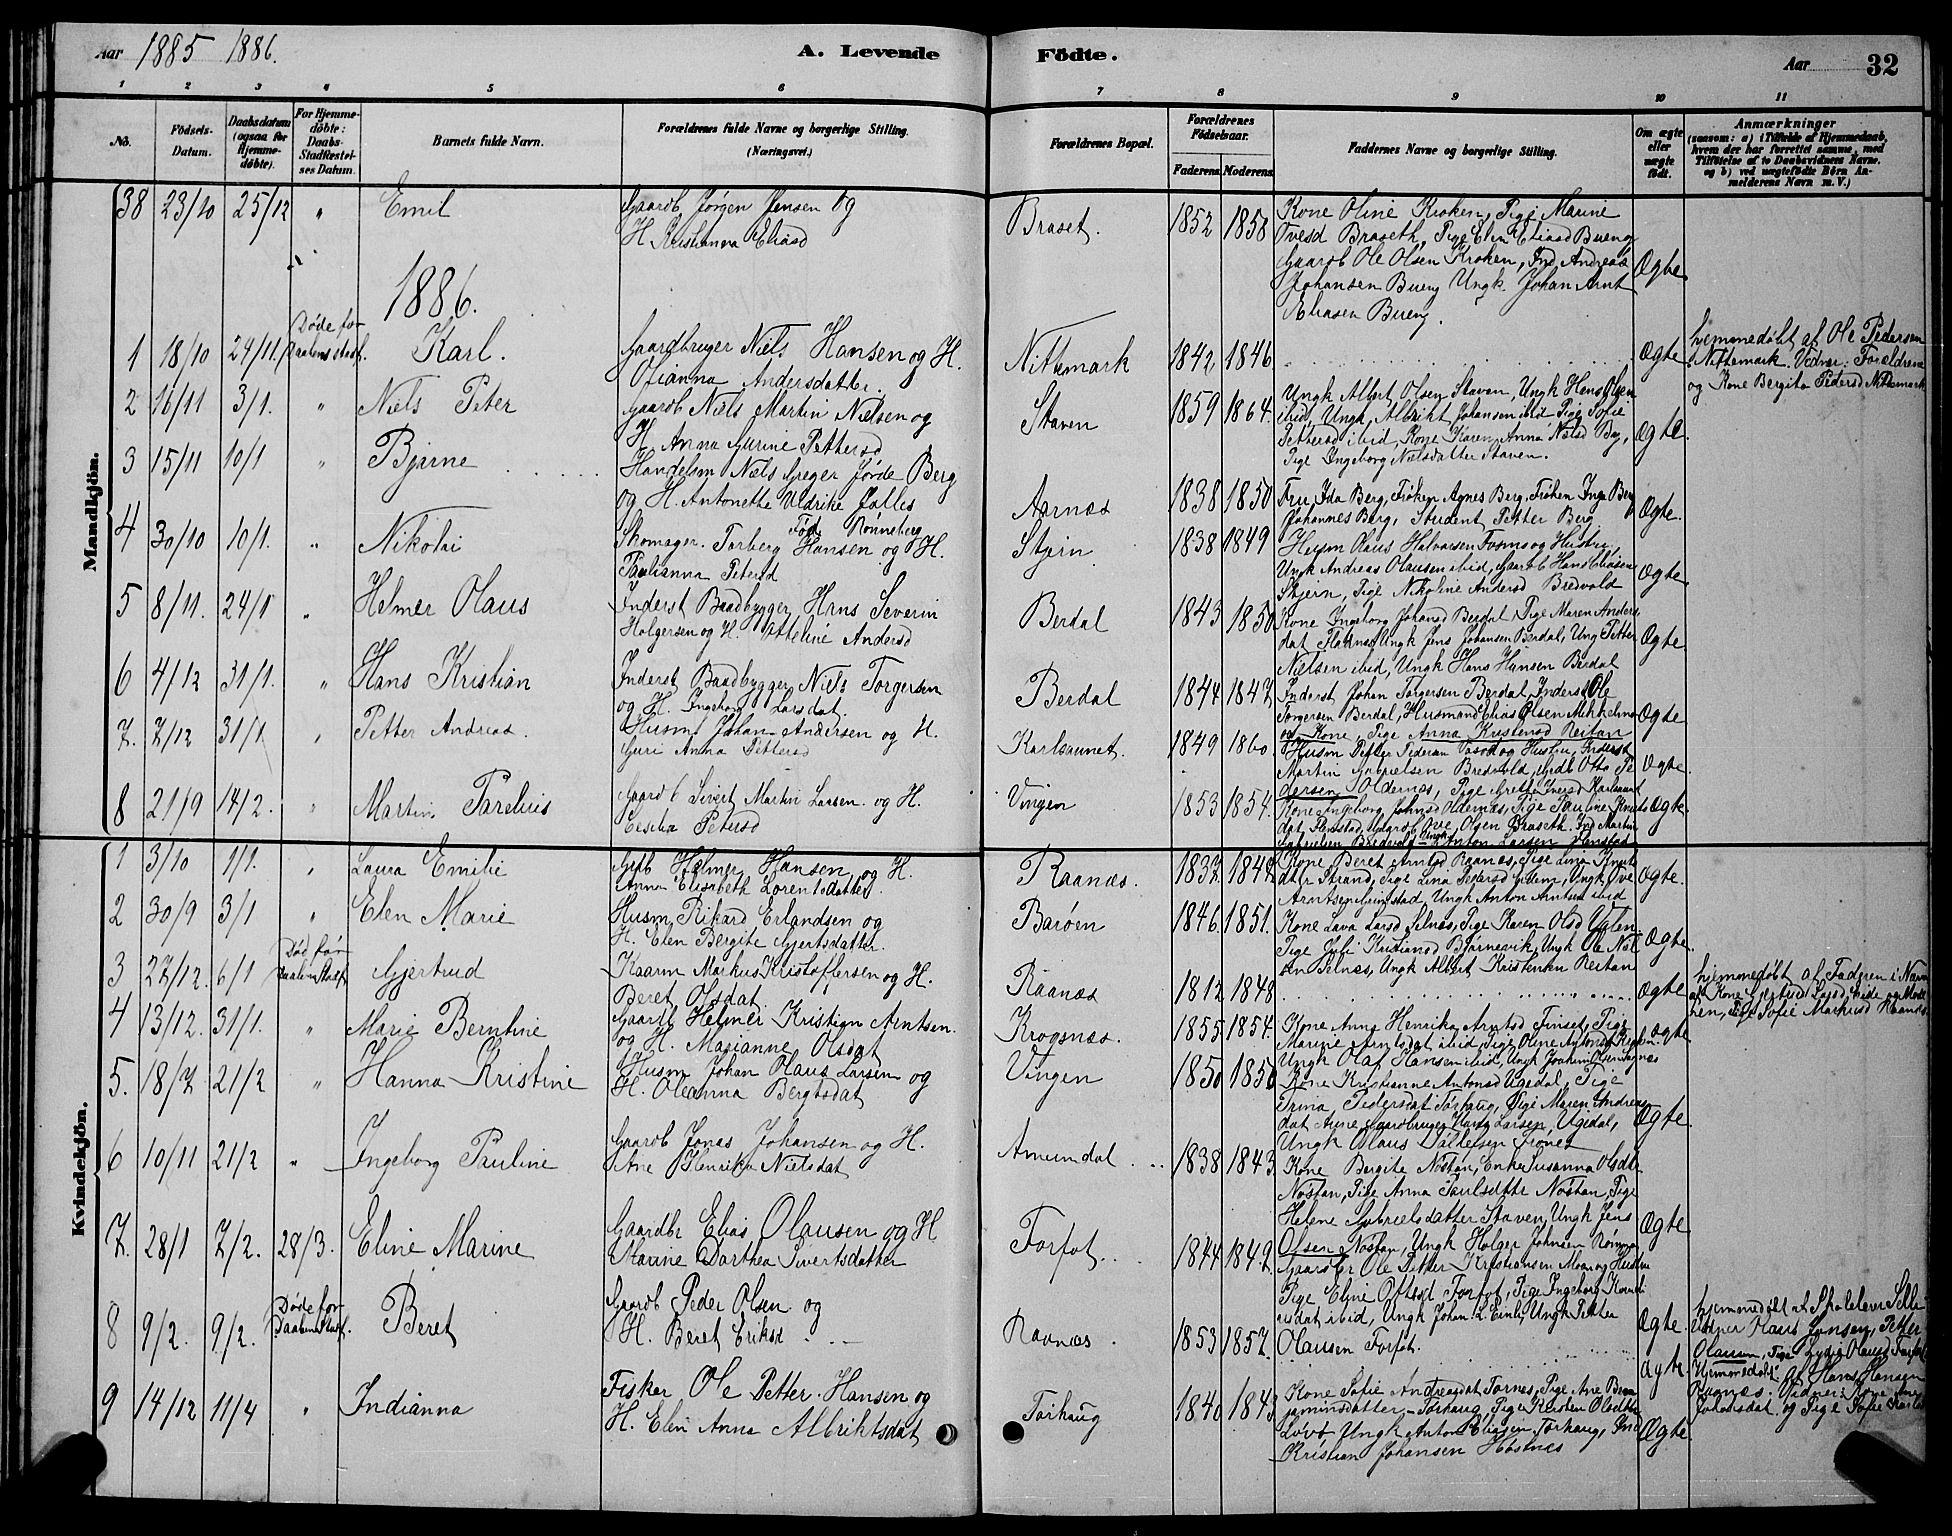 Aar 1885 1886.
A. Levende Födte.
Aar 32
1 2 3 4 5 6 7 8 9 10 11
No.
Födsels-Datum.
Daabsdatum (ogsaa for Hjemme-döbte).
For Hjemme-döbte: Daabs-Stadfæstel-ses Datum.
Barnets fulde Navn.
Forældrenes fulde Navne og borgerlige Stilling.
(Næringsvei.)
Forældrenes Bopæl.
Forældrenes Födselsaar.
Faderens. Moderens.
Faddernes Navne og borgerlige Stilling.
Om ægte eller uægte födt.
Anmærkninger
(saasom: a) i Tilfælde af Hjemmedaab,
hvem der har forrettet samme, med
Tilföielse af to Daabsvidners Navne.
og b) ved uægtefödte Börn An-
melderens Navn m. V.)
Mandkjön.
38 23/10 25/12 " Emil
Gaardb Jørgen Jensen og
H. Kristianna Eliasd
Braset. 1852 1858
Kone Oline Kroken, Pige Marine
Ivesd Braseth, Pige Elen Eliasd Bueng
Gaardb Ole Olsen Kroken, Ind Andreas
Johansen Bueng Ungk. Johan Arnt
Eliasen Bueng.
Ægte
1886.
1 18/10 24/11. Døde før Daabens stadf. Karl.
Gaardbruger Niels Hansen og H.
Ofianna Andersdatter.
Nittemark 1842 1846
Ægte
hjemmedøbt af Ole Pedersen
Nittemark. Vidner: Forældrene
og Kone Bergita Pedersd Nittemark
2 16/11 3/1. " Niels Peter
Gaardb Niels Martin Nielsen og
H. Anna Gurine Pettersd
Staven 1859 1864.
Ungk Albert Olsen Staven, Ungk Hans Olsen
ibid, Ungk. Albrikt Johansen ibid Pige Sofie
Pettersd ibid, Kone Karen Anna Nielsd By,
Pige Ingeborg Nielsdatter Staven.
Ægte.
3 15/11 10/1 " Bjarne
Handelsm Niels Greger Jørde Berg
og H. Antonette Uldrike Jalles
Fød Rønneberg
Aarnæs 1838 1850
Fru Ida Berg, Frøken Agnes Berg, Frøken Inga Berg
Johannes Berg, Student Petter Berg
Ægte.
4 30/10 10/1. " Nikolai
Skomager. Torberg Hansen og H.
Paulianna Petersd
Stjern 1838 1849
Husm Olaus Halvarsen og Hustru,
Ungk Andreas Olausen ibid, Gaardb Hans Eliasen
Stjern, Pige Nikoline Andersd Bredvold
Ægte
5 8/11. 24/1 " Helmer Olaus
Inderst Baadbygger Hans Severin
Holgersen og H. Andersd
Berdal 1843 1850
Kone Ingeborg Johansd Berdal Pige Maren Anders
dat Ungk Jens Johansen Berdal, Ung Petter
Nielsen ibid, Ungk Hans Hansen Berdal
Ægte
6 4/12 31/1. " Hans Kristian
Inderst Baadbygger Niels Torgersen
og H. Ingeborg Larsdat.
Berdal 1844 1847
Inderst Johan Torgersen Berdal, Inderst Ole
Torgersen Berdal, Husmand Elias Olsen
og Kone, Pige Anna Kristensd Reitan
Ægte
7. 7/12 31/1 " Petter Andreas.
Husm Johan Andersen og H.
Guri Anna Pettersd
Karlsaunet. 1849 1860
Husm Petter Pedersen og Hustru, Inderst
Martin Gabrielsen Bredvold, Otto Pe
dersen Oldernæs, Pige Grette Iversd Karlsaunet
Ægte
8 21/9 14/2. " Martin Parelius
Gaardb Sivert Martin Larsen og H.
Cecilia Petersd
Vingen 1853 1854.
Kone Ingeborg Johnsd Oldernæs, Pige Pauline Knuts
dat Flenstad, Ove Olsen Braseth. Ind Martin
Gabrielsen Bredvold Ungk Anton Larsen Flenstad
Ægte
Kvindekjön.
1 3/10 1/1. " Laura Emilie
Grb Helmer Hansen og H.
Anna Elisabeth Lorentsdatter.
Raanæs. 1837 1842
Kone Beret Arntsd Raanæs, Pige Lina Knuts
dtter Strand, Pige Lina Pedersd Ungk Ove
Arntsen Ungk Anton Arntsen ibid
Ægte.
2 30/9 3/1 " Elen Marie
Husm Rikard Erlandsen og
H. Elen Bergite Gjertsdatter.
Barøen 1846. 1851.
Kone Lava Larsd Selnæs, Pige Karen Olsd Valen
Pige Juli Kristiansd Bjørnevik Ungk Ole Niel
sen Selnæs, Ungk Albert Kristensen Reitan
Ægte.
3 27/12. 6/1 Død før daabens Stadf. Gjertrud
Kaarm Markus Kristoffersen og H.
Beret Olsdat.
Raanæs 1812 1848
Ægte
hjemmedøbt af Faderen i Nærv
af Kone
Pige Sofie Markusd Raanæs.
4 13/12. 31/1. " Marie Berntine
Gaardb Helmer Kristian Arntsen.
og H. Marianne Olsdat
Krogsnæs. 1855 1854.
Kone Anne Henrika Arntsd Finset, Pige
Marine Arntsdat ibid, Pige Oline Antonsd
Ungk Olaf Hansen ibid, Ungk Joakim Olsen
Ægte
5. 18/7 21/2 " Hanna Kristine
Husm Johan Olaus Larsen og
H. Oleanna Bergtsdat
Vingen 1850 1850
Kone Kristianne Antonsd Agedal, Pige
Trina Pedersdat Torhaug, Pige Maren Andreas
dat Gaardbruger Larsen, Agedal,
Ungk Olaus
Ægte
6 10/11 21/2 " Ingeborg Pauline
Gaardb Jonas Johansen og H.
Ane Henrika Nielsdat
Amundal 1838 1843
Kone Bergite Nøstan, Enke Susanna Olsdtr
Nøstan, Pige Anna Paulsdtter Nøstan, Pige
Helene Gabrielsdatter Staven, Ungk Jens
Olsen Nøstan, Ungk Holger Johnsen
Ægte
7. 28/1 7/2. 28/3. Eline Marine
Gaardbr Elias Olausen og H
Marine Dorthea Sivertsdatter
Forfot. 1844 1849.
Gaardbr Ole Petter Kristiansen Moan og Hustru
Pige Eline Forfot, Pige Ingeborg
ibid, Ungk Johan L. Ungk Petter
Olausen Forfot.
Ægte
8 9/2. 9/2. Døde før Daabens Stadf. Beret
Gaardb Peder Olsen og
H. Beret Eriksd
Raanæs 1853 1857.
Ægte
hjemmedøbt af
Vidner Jonsen, Petter
Olausen, Pige Lydia Olausd Forfot
hjemmedøbt af Hans Hansen
Raanæs. Vidner: Kone
Johansdat. og Pige Sofie
9 14/12 11/4 " Indianna
Fisker Ole Petter Hansen og
H. Elen Anna Albriktsdat
Torhaug 1840 1843
Kone Sofie Andreasdat Tornes, Pige Ane Ben
jaminsdatter Torhaug Pige Kirsten Olsdtter
Løvø Ungk Anton Eliasen Torhaug, Ind
Kristian Johansen Høstnes
Ægte.